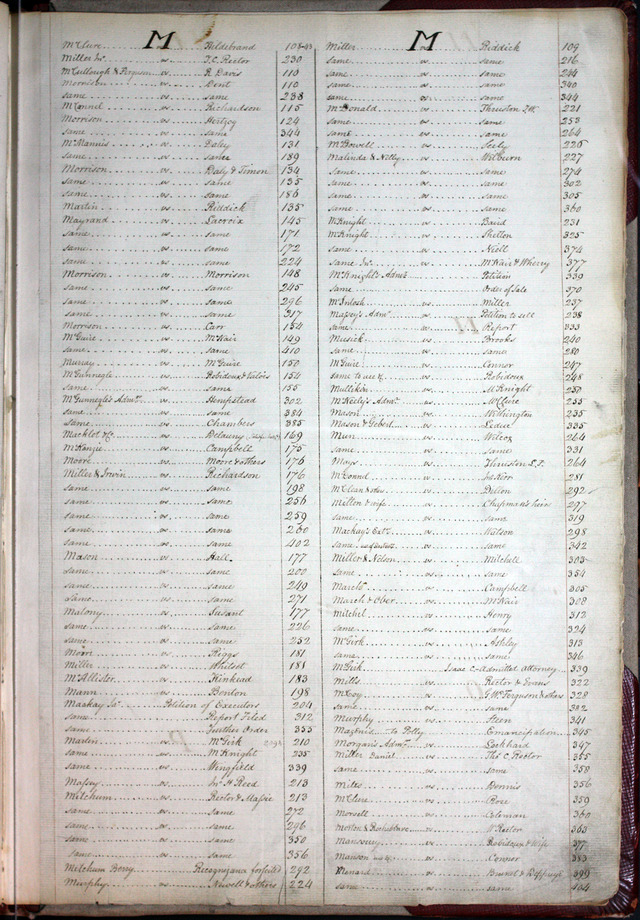 M
McClure vs. Hildebrand 108-83
Miller Jno. vs. T.C. Rector 230
McCullough & Ferguson vs. R Davis 110
Morrison vs. Dent 110
same vs. same 238
McConnel vs. Richardson 115
Morrison vs. Hertzog 124
same vs. same 344
McMannis vs. Daley 131
same vs. same 189
Morrison vs. Daly & Timon 134
same vs. same 135
same vs. same 186
Martin vs. Riddick 135
Mayrand vs. Lacroix 145
same vs. same 171
same vs. same 172
same vs. same 224
Morrison vs. Morrison 148
same vs. same 245
same vs. same 296
same vs. same 317
Morrison vs. Carr 154
McGuire vs. McNair 149
same vs. same 410
Murray vs. McGuire 150
McGunnegle vs. Robidoux & Valois 154
same vs. same 155
McGunnegle's Admr. vs. Hempstead 302
same vs. same 384
same vs. Chambers 385
Macklot &c. vs. Delauny 169
McKenzie vs. Campbell 175
Moore vs. Moore & others 176
Miller & Irwin vs. Richardson 176
same vs. same 198
same vs. same 256
same vs. same 259
same vs. same 260
same vs. same 402
Mason vs. Hall 177
same vs. same 200
same vs. same 249
same vs. same 271
Malony vs. 177
same vs. same 226
same vs. same 252
Moore vs. Riggs 181
Miller vs. Whitset 181
McAllister vs. Kinkead 183
Mann vs. Benton 198
Mackay Ja. Petition of Executors 204
same Report Filed 312
same Further Order 355
Martin vs. McGirk 210
same vs. McKnight 235
same vs. Wingfield 339
Massey vs. Jno. H Reed 213
Mitchum vs. Rector & Massie 213
same vs. same 272
same vs. same 296
same vs. same 350
same vs. same 356
Mitchum Berry Recognizance forfeited 292
Murphy vs. Newell & others 224
M
Miller vs. Riddick 109
same vs. same 216
same vs. same 244
same vs. same 340
same vs. same 344
McDonald vs. Thruston 221
same vs. same 253
same vs. same 264
McDowell vs. Seely 225
Malinda & Nelly vs. Wilburn 227
same vs. same 274
same vs. same 302
same vs. same 305
same vs. same 360
McKnight vs. Baird 231
McKnight vs. Shelton 325
same vs. Niell 374
same Jno. vs. McNair & Wherry 377
McKnight's Admr. Petition 339
same Order of Sale 370
McIntosh vs. Miller 237
Massey's Admr. Petition to sell 238
same Report 333
Musick vs. Brooks 240
same vs. same 280
McGuire vs. Connor 247
same to use of vs. Robidoux 248
Mullikin vs. McKnight 250
McNeely's Admr. vs. McClure 255
Mason vs. Withington 235
Mason & Gebert vs. Leduc 335
Mun vs. Wilcox 264
same vs. same 331
Mays vs. Thruston 264
McConnel vs. 281
McClean & others vs. Dillon 292
Millen & wife vs. Chapman's heirs 297
same vs. same 319
Mackay's Exr. vs. Watson 298
same vs. same 342
Miller & Nelson vs. Mitchell 303
same vs. same 354
March vs. Campbell 305
March & Ober vs. McNair 308
Mitchel vs. Henry 312
same vs. same 324
McGirk vs. Ashley 313
same vs. same 346
McGirk Isaac C. Admitted attorney 339
Mills vs. Rector & Evans 322
McCoy vs. G. W. Ferguson & others 328
same vs. same 382
Murphy vs. Steen 341
Maginis to Polly Emancipation 345
Morgan's Admr. vs. Lockhard 347
Miller Daniel vs. Thos. C Rector 355
same vs. same 358
Miles vs. Dennis 356
McClure vs. Rose 359
Morsell vs. Coleman 360
Morton & vs. W Rector 363
vs. Robidoux & Wife 377
Manson vs. Connor 383
Menard vs. 399
same vs. same 404